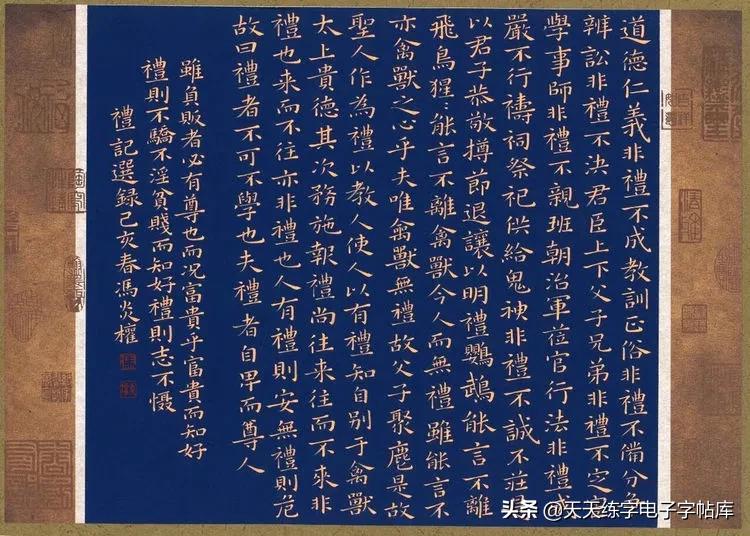 道德仁義非禮不成教訓正俗非禮不備分爭
辨訟非禮不決君臣上下父子兄弟非禮不定宦
學事師非禮不親班朝治軍莅官行法非禮威
嚴不行禱祠祭祀供給鬼神非禮不誠不莊是
以君子恭敬撙節退讓以明禮鸚鵡能言不離
飛鳥猩〻能言不離禽獸今人而無禮雖能言不
亦禽獸之心乎夫唯禽獸無禮故父子聚麀是故
聖人作為禮以教人使人以有禮知自別于禽獸
太上貴德其次務施報禮尚往来往而不來非
禮也来而不往亦非禮也人有禮則安無禮則危
故曰禮者不可不學也夫禮者自卑而尊人
雖負販者必有尊也而況富貴乎富貴而知好
禮則不驕不淫貧賤而知好禮則志不懾
禮記選録己亥春馮炎權
头条 @天天练字电子字帖库